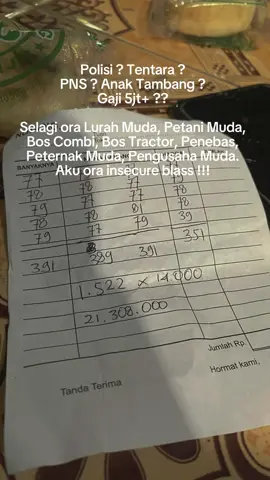 Polisi ? Tentara ?
PNS ? Anak Tambang ?
Gaji 5jt+ ??
Selagi ora Lurah Muda, Petani Muda,
Bos Combi, Bos Tractor, Penebas,
Peternak Muda, Pengusaha Muda.
Aku ora insecure blass !!!
BANYAKNYA
77 78 77 78
78 77 77 78
79 78 81 78
78 77 79 39
79 77 351
391 389 391
1.522 x 14.000
21.308.000
Jumlah Rp.
Tanda Terima
Hormat kami,